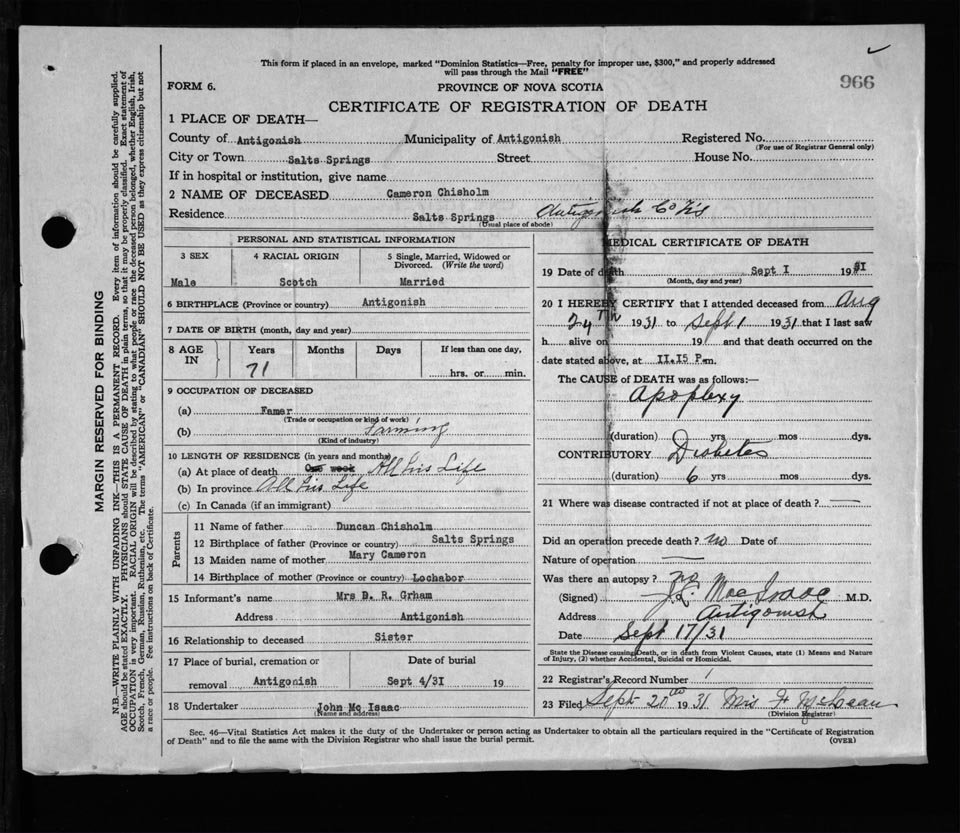 This form if placed in an envelope, marked "Dominion Statistics—Free, penalty for improper use, $300," and properly addressed
will pass through the Mail "FREE"
966
FORM 6.
PROVINCE OF NOVA SCOTIA
CERTIFICATE OF REGISTRATION OF DEATH
1 PLACE OF DEATH—
County of Antigonish Municipality of Antigonish Registered No.
(For use of Registrar General only)
City or Town Salts Springs Street House No.
If in hospital or institution, give name
2 NAME OF DECEASED Cameron Chisholm
Residence Salts Springs Antigonish Co
(Usual place of abode)
PERSONAL AND STATISTICAL INFORMATION
3 SEX 4 RACIAL ORIGIN 5 Single, Married, Widowed or
Divorced. (Write the word)
Male Scotch Married
6 BIRTHPLACE (Province or country) Antigonish
7 DATE OF BIRTH (month, day and year)
8 AGE IN Years Months Days If less than one day,
71 hrs. or min.
9 OCCUPATION OF DECEASED
(a) Famer
(Trade or occupation or kind of work)
(b) Farming
(Kind of industry)
10 LENGTH OF RESIDENCE (in years and months)
(a) At place of death One week All his Life
(b) In province All his Life
(c) In Canada (if an immigrant)
Parents
11 Name of father Duncan Chisholm
12 Birthplace of father (Province or country) Salts Springs
13 Maiden name of mother Mary Cameron
14 Birthplace of mother (Province or country) Lochabor
15 Informant's name Mrs D. R. Grham
Address Antigonish
16 Relationship to deceased Sister
17 Place of burial, cremation or Date of burial
removal Antigonish Sept 4/3I 19
18 Undertaker John Mc Isaac
(Name and address)
MEDICAL CERTIFICATE OF DEATH
19 Date of death Sept I 1931
(Month, day and year)
20 I HEREBY CERTIFY that I attended deceased from Aug
24th 1931 to Sept 1 1931 that I last saw
h alive on 19 and that death occurred on the
date stated above, at II.I5 P.m.
The CAUSE of DEATH was as follows:—
Apoplexy
(duration) yrs mos dys.
CONTRIBUTORY Diabetes
(duration) 6 yrs mos dys.
21 Where was disease contracted if not at place of death?
Did an operation precede death? no Date of
Nature of operation
Was there an autopsy? no
(Signed) J.L. MacIsaac M.D.
Address Antigonish
Date Sept 17/31
State the Disease causing Death, or in death from Violent Causes, state (1) Means and Nature
of Injury, (2) whether Accidental, Suicidal or Homicidal.
22 Registrar's Record Number 1
23 Filed Sept 20th 1931 Mrs
(Division Registrar)
Sec. 46—Vital Statistics Act makes it the duty of the Undertaker or person acting as Undertaker to obtain all the particulars required in the "Certificate of Registration
of Death" and to file the same with the Division Registrar who shall issue the burial permit.
(OVER)
MARGIN RESERVED FOR BINDING
N.B.—WRITE PLAINLY WITH UNFADING INK—THIS IS A PERMANENT RECORD. Every item of information should be carefully supplied.
AGE should be stated EXACTLY. PHYSICIANS should STATE CAUSE OF DEATH in plain terms, so that it may be properly classified. Exact statement of
OCCUPATION is very important. RACIAL ORIGIN will be described by stating to what people or race the deceased person belonged, whether English, Irish,
Scotch, French, German, Russian, Ruthenian, etc. The terms "AMERICAN" or "CANADIAN" SHOULD NOT BE USED as they express citizenship but not
a race or people. See instructions on back of Certificate.